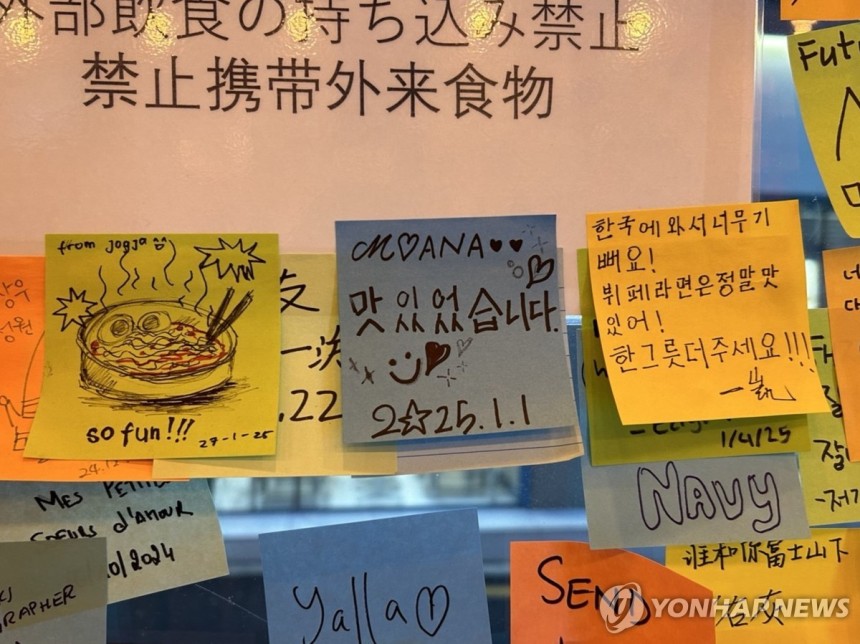 外部飲食の持ち込み禁止
禁止携带外来食物
from jogja
so fun!!!
27-1-25
M♡ANA♥♥
맛있었습니다.
2☆25.1.1
한국에와서너무기
뻐요!
뷔페라면은정말맛
있어!
한그릇더주세요!!!
Futu
友
.22
24.12
1/4/25
NAVY
MES PETITS
COEURS d'AMOUR
10/2024
GRAPHER
yalla♡
SEND
谁和你富士山下
YONHAPNEWS